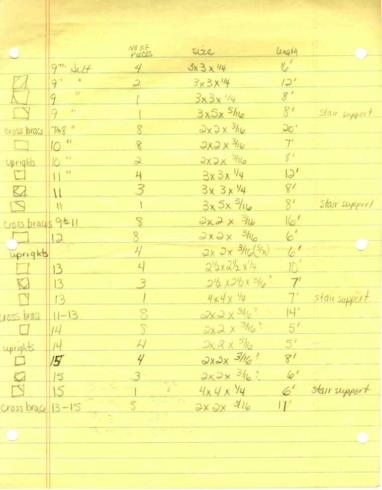 NO OF PIECES size length
9" 4 3x3x1/4 16'
9" " 2 3x3x1/4 12'
9 " 1 3x3x1/4 8'
9 " 1 3x5x5/16 8' Stair support
cross brace 7&8 " 8 2x2x3/16 20'
10 " 8 2x2x3/16 7'
uprights 10 " 2 2x2x3/16 8'
11 " 4 3x3x1/4 12'
11 3 3x3x1/4 8'
11 1 3x5x5/16 8' Stair support
cross braces 9&11 8 2x2x3/16 16'
12 8 2x2x3/16 6'
uprights 4 2x2x3/16 6'
13 4 2 1/2x2 1/2x1/4 10'
13 3 2 1/2x2 1/2x3/16 7'
13 1 4x4x1/4 7' stair support
cross brace 11-13 8 2x2x3/16 14'
14 8 2x2x3/16 5'
uprights 14 4 2x2x3/16 5'
15 4 2x2x3/16? 8'
15 3 2x2x3/16? 6'
15 1 4x4x1/4 6' Stair support
cross brace 13-15 5 2x2x3/16 11'